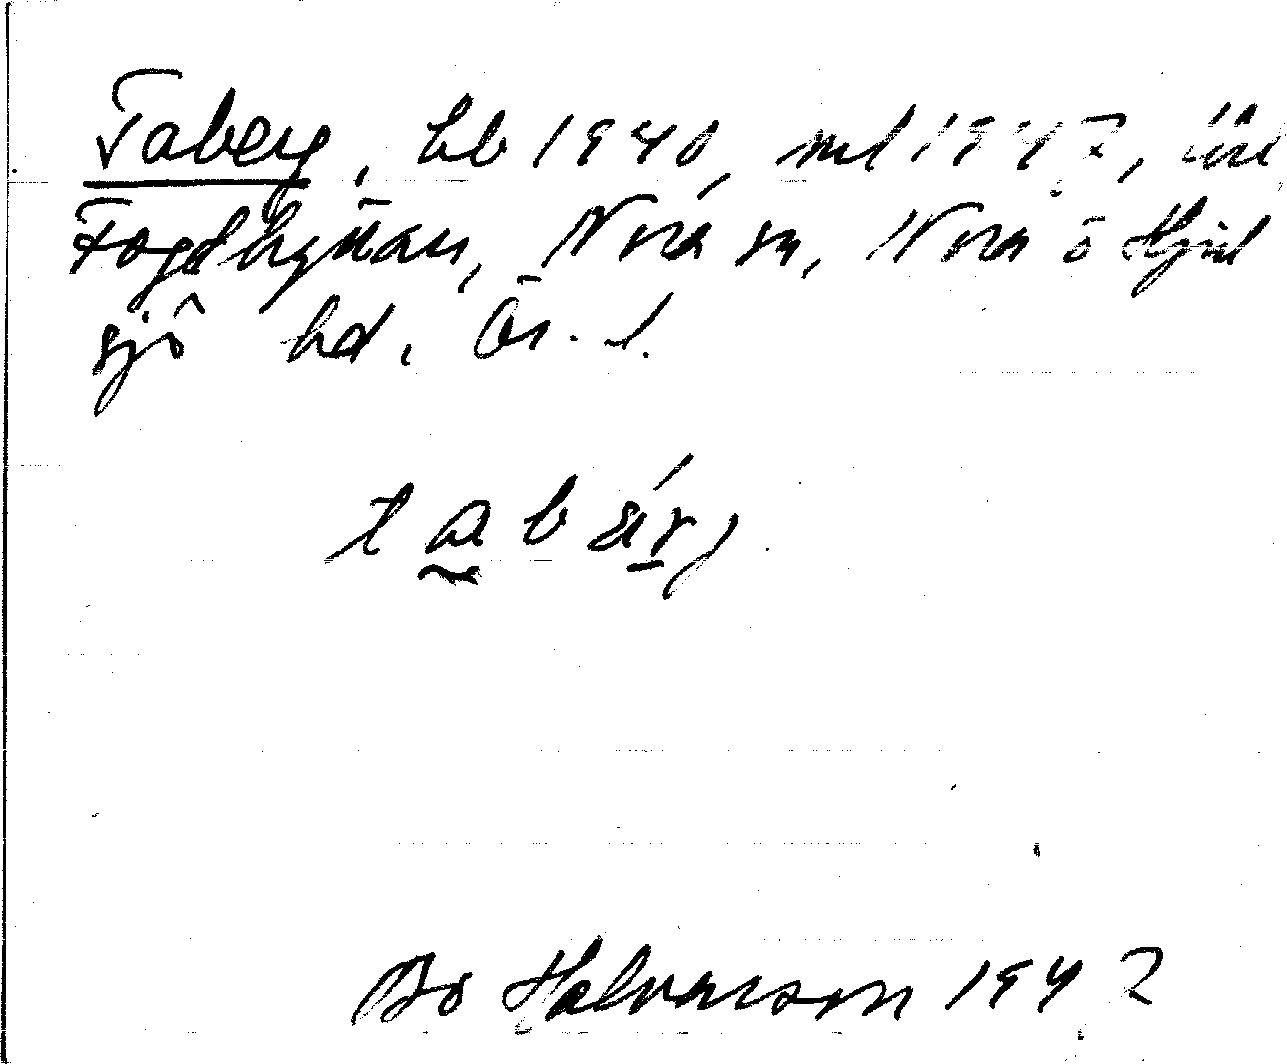 Taberg, hb 1940, ml 1947, ur
Fogdhyttan, Nora sn, Nora o Hjul
sjö hd. Ör. l.
tabärj
Bo Halvarson 1947